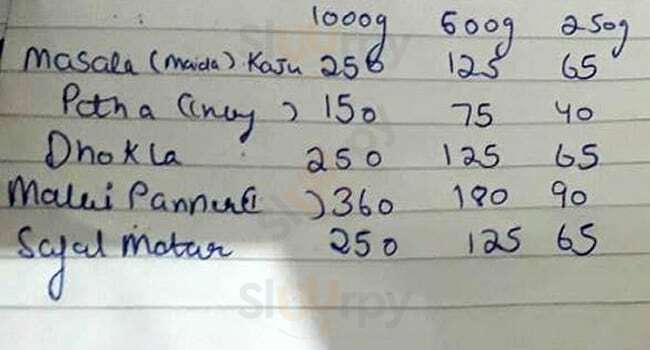 1000g 500g 250g
Masala (Maida) Kaju 250 125 65
Petha (Incy ) 150 75 40
Dhokla 250 125 65
Malai Panner (1 ) 360 180 90
Sajal Matar 250 125 65
Sluurpy
Sluurpy